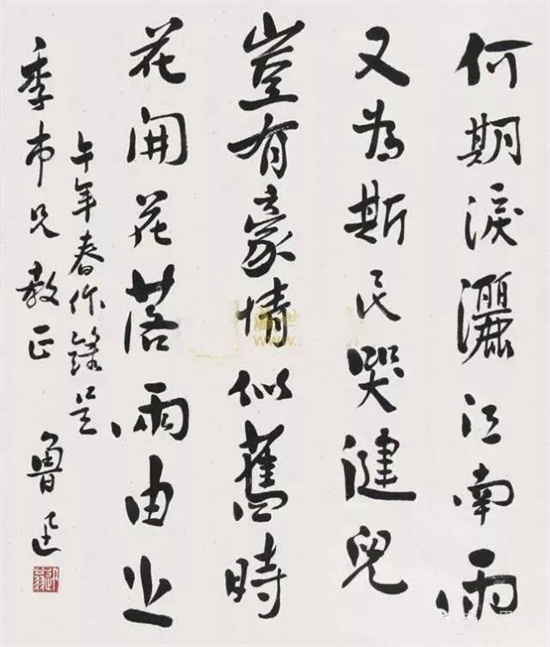 何期淚灑江南雨
又為斯民哭健兒
豈有豪情似舊時
花開花落兩由之
午年春作錄呈
季市兄教正 魯迅